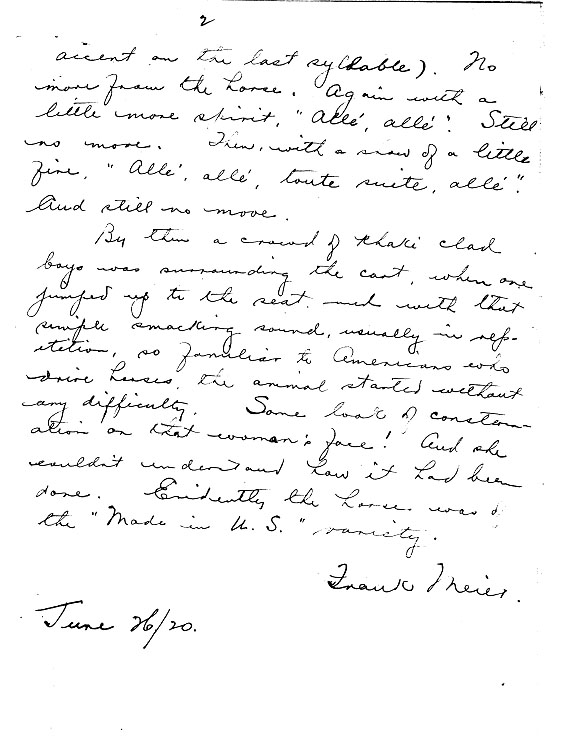 2
accent on the last syllable). No
move from the horse. Again with a
little more spirit, "Allé, allé". Still
no move. Then, with a snow of a little
fire, "Allé, allé, toute suite, allé".
And still no move.
By then a crowd of khaki clad
boys was surrounding the cart, when one
jumped up to the seat and with that
simple smacking sound, usually in rep-
etition, so familiar to Americans who
drive horses, the animal started without
any difficulty. Some look of constern-
ation on that woman's face! And she
couldn't understand how it had been
done. Evidently the horse was of
the "Made in U.S." variety.
Frank Meier.
June 26/20.